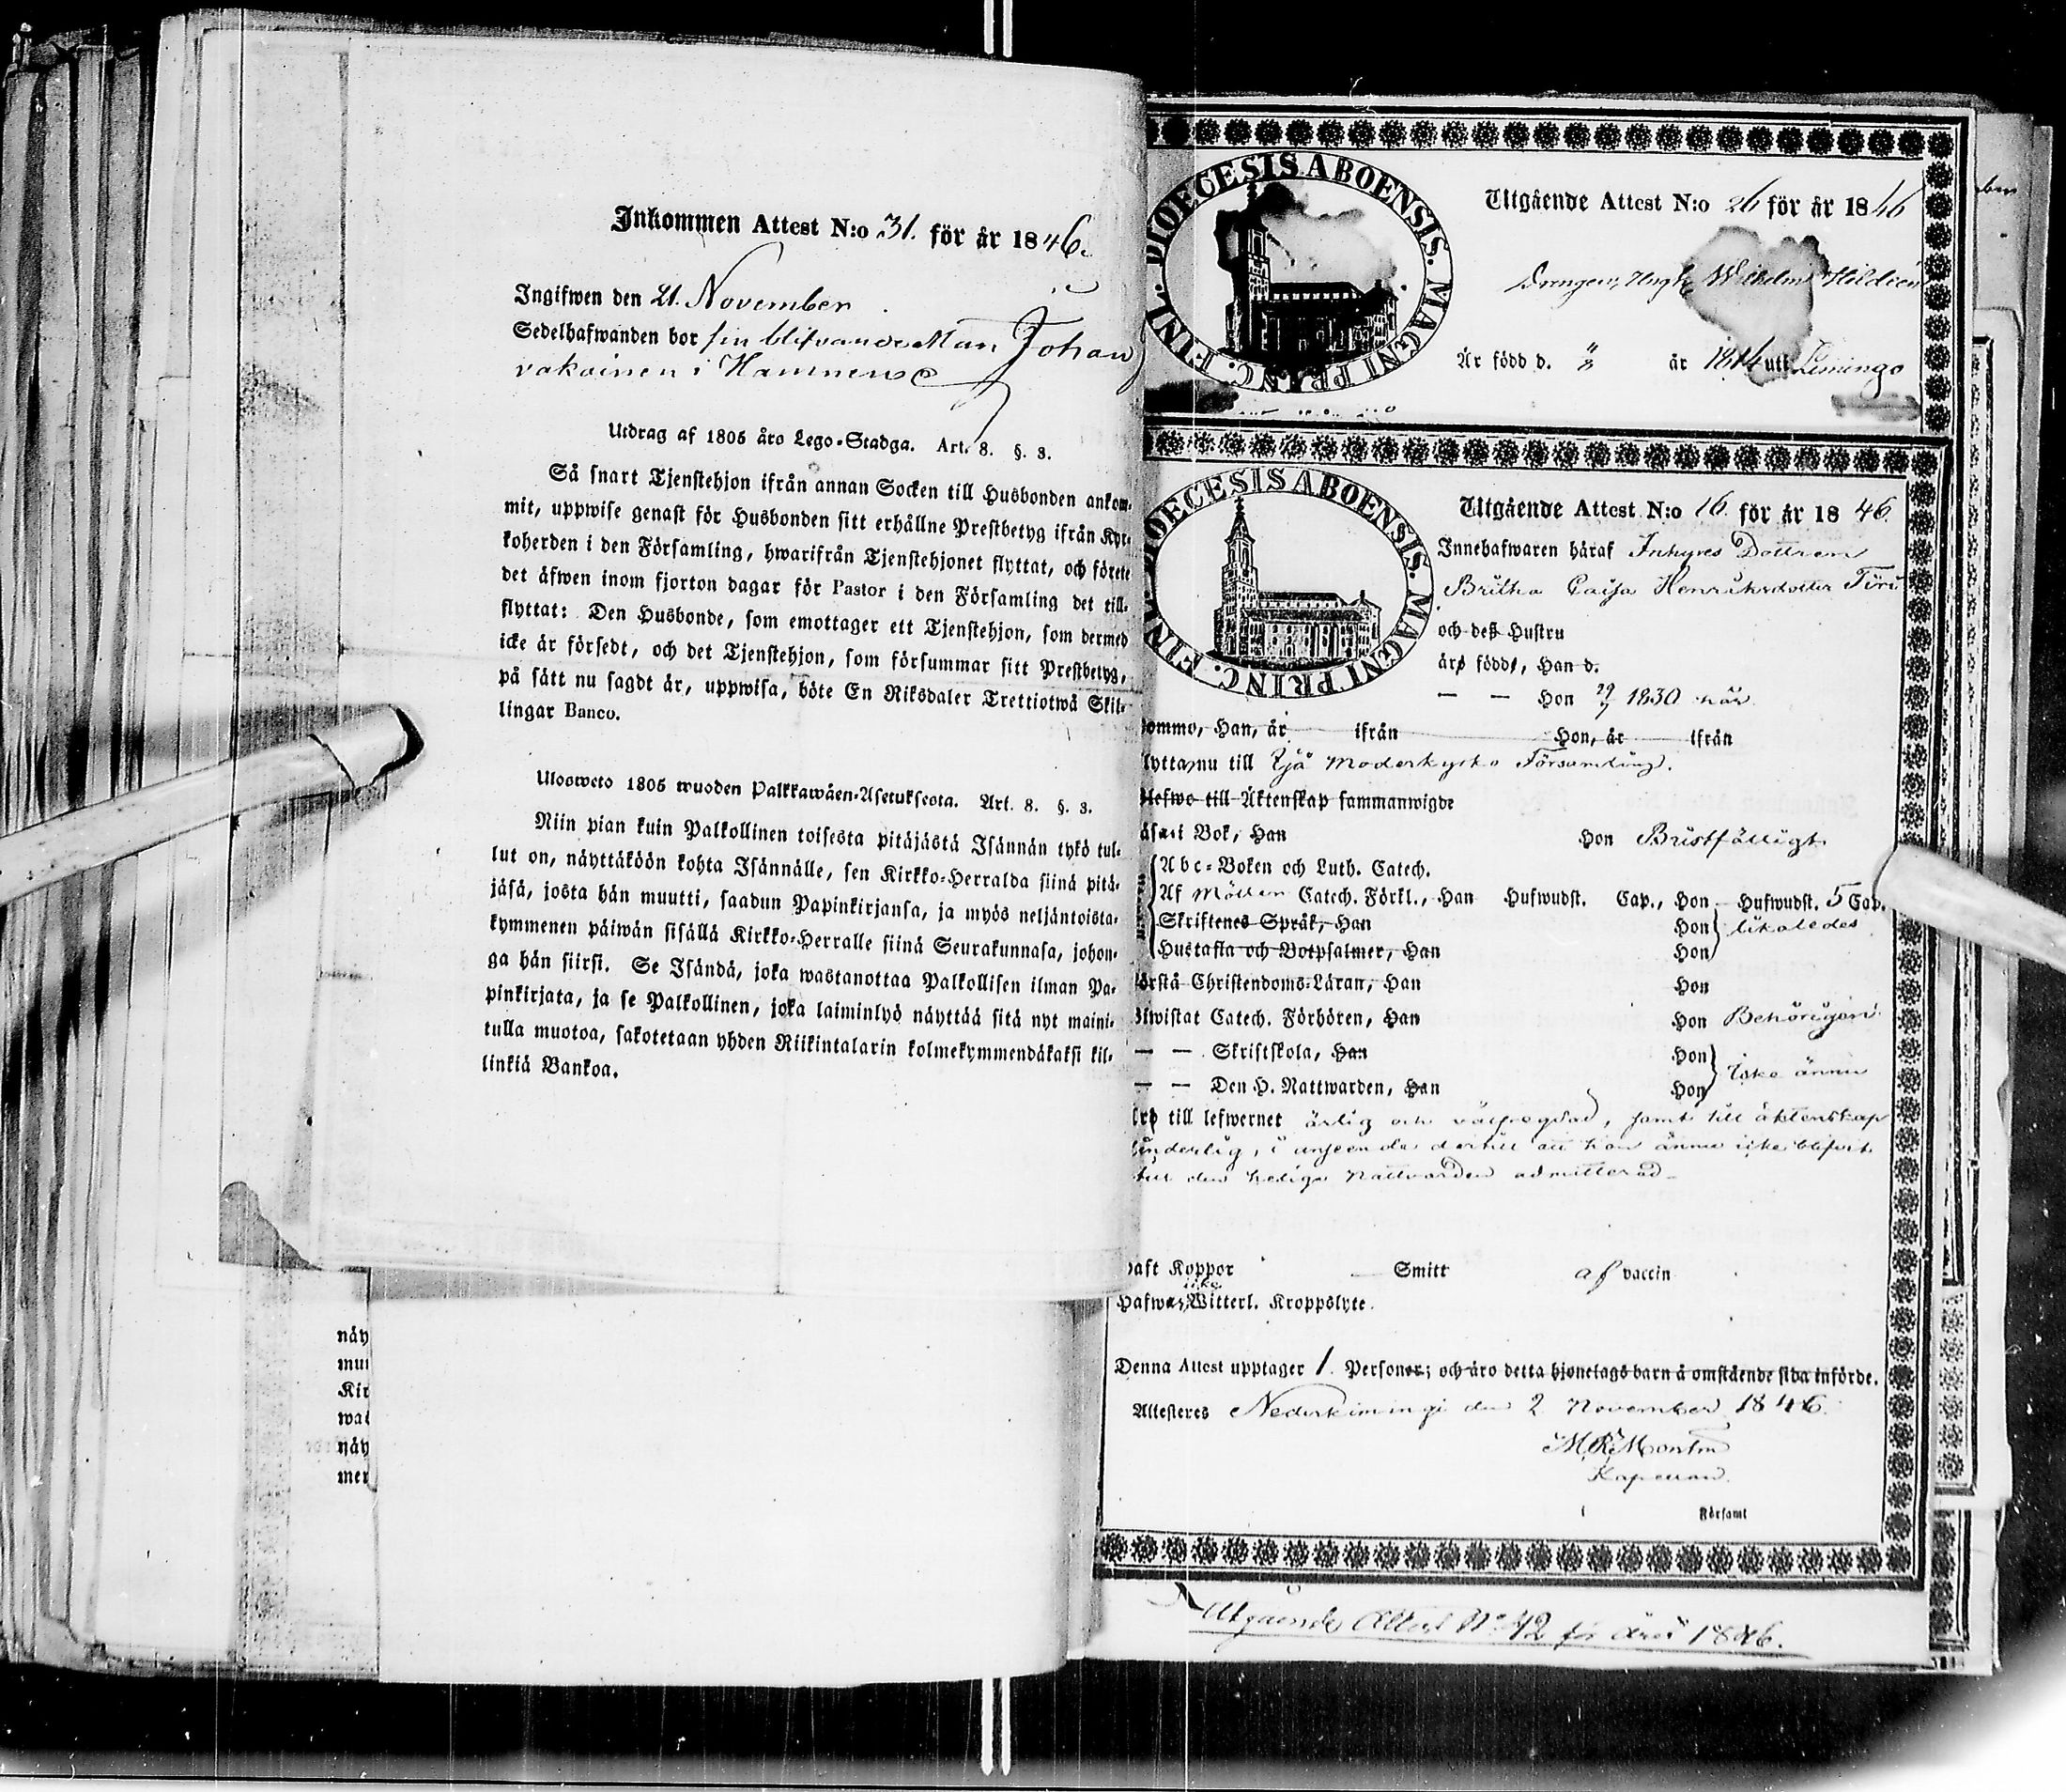 Inkommen Attest N:o 31. för år 1846.
Ingifwen den 21. November
Sedelhafwanden bor sin blifvande Man Johan
i
Utdrag af 1805 års Lego-Stadga. Art. 8. §. 3.
Så snart Tjenstehjon ifrån annan Socken till Husbonden ankom-
mit, uppwise genast för Husbonden sitt erhållne Prestbetyg ifrån Kyr-
koherden i den Församling, hwarifrån Tjenstehjonet flyttat, och förete
det äfwen inom fjorton dagar för Pastor i den Församling det till-
flyttat: Den Husbonde, som emottager ett Tjenstehjon, som dermed
icke är försedt, och det Tjenstehjon, som försummar sitt Prestbetyg,
på sätt nu sagdt är, uppwisa, böte En Riksdaler Trettiotwå Skil-
lingar Banco.
Ulosweto 1805 wuoden Palkkawäen-Asetuksesta. Art. 8. §. 3.
Niin pian kuin Palkollinen toisesta pitäjästä Isännän tykö tul-
lut on, näyttäköön kohta Isännälle, sen Kirkko-Herralda siinä pitä-
jäsä, josta hän muutti, saadun Papinkirjansa, ja myös neljäntoista-
kymmenen päiwän sisällä Kirkko-Herralle siinä Seurakunnasa, johon-
ga hän siirsi. Se Isändä, joka wastanottaa Palkollisen ilman Pa-
pinkirjata, ja se Palkollinen, joka laiminlyö näyttää sitä nyt maini-
tulla muotoa, sakotetaan yhden Riikintalarin kolmekymmendäkaksi kil-
linkiä Bankoa.
näy
mui
Kir
wai
näy
mer
DIOECESIS ABOENSIS. MAGNI PRINC. FINL.
Utgående Attest N:o 26 för år 1846
Drängen Wilhelm
Är född d. år 1814 uti Limingo
DIOECESIS ABOENSIS. MAGNI PRINC. FINL.
Utgående Attest N:o 16 för år 1846.
Innehafwaren häraf Inhyses Dottren
Britha Caisa Henriksdotter
och deß Hustru
äro födde, Han d.
— — Hon 29/7 1830 här
komme, Han, år ifrån Hon, år ifrån
flytta nu till Ijå Moderkyrko Församling.
Blefwo till Äktenskap sammanwigde
läsa i Bok, Han Hon Bristfälligt
Abc-Boken och Luth. Catech.
Af Möllers Catech. Förkl., Han Hufwudst. Cap., Hon Hufwudst. 5 Cap.
Skriftenes Språk, Han Hon likaledes
Hustafla och Botpsalmer, Han Hon
förstå Christendoms-Läran, Han Hon
biwistat Catech. Förhören, Han Hon Behörigen
— — Skriftskola, Han Hon icke ännu
— — Den H. Nattwarden, Han Hon
äro till lefwernet ärlig och välfrägdad, samt till äktenskap
hinderlig, i anseende dertill att hon ännu icke blifvit
till den heliga Nattvarden admitterad
haft Koppor Smitt af vaccin
Hafwa icke Witterl. Kroppslyte.
Denna Attest upptager 1. Personer; och äro detta hjonelags barn å omstående sida införde.
Attesteres Nederkimingi den 2 November 1846.
Kapellan.
Församl
Utgående Attest N:o 42 för året 1846.